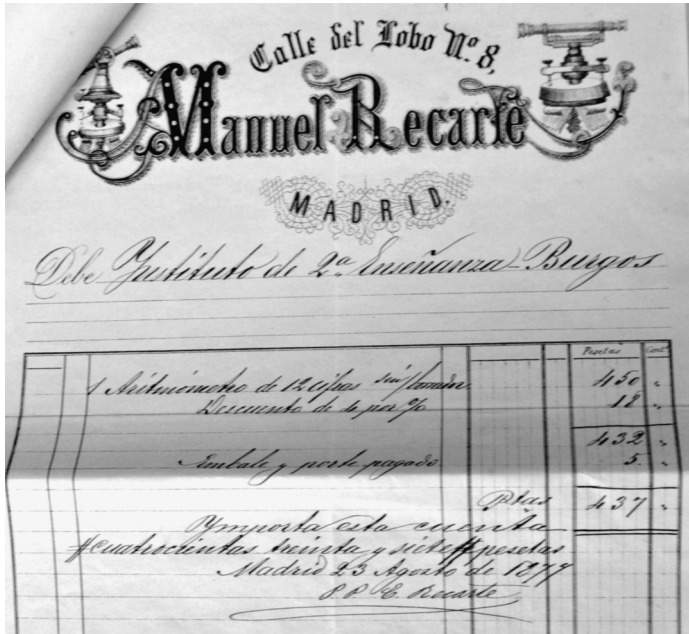 Calle del Lobo Nº. 8,
Manuel Recarte
MADRID.
Debe Ynstituto de 2ª Enseñanza - Burgos
Pesetas Cent.
1 Aritmómetro de 12 cifras sin borrador 450 "
Descuento de 4 por % 18 "
432 "
Embale y porte pagado 5. "
Ptas 437 "
Ymporta esta cuenta
#cuatrocientas treinta y siete# pesetas
Madrid 23 Agosto de 1877
P. P. E. Recarte